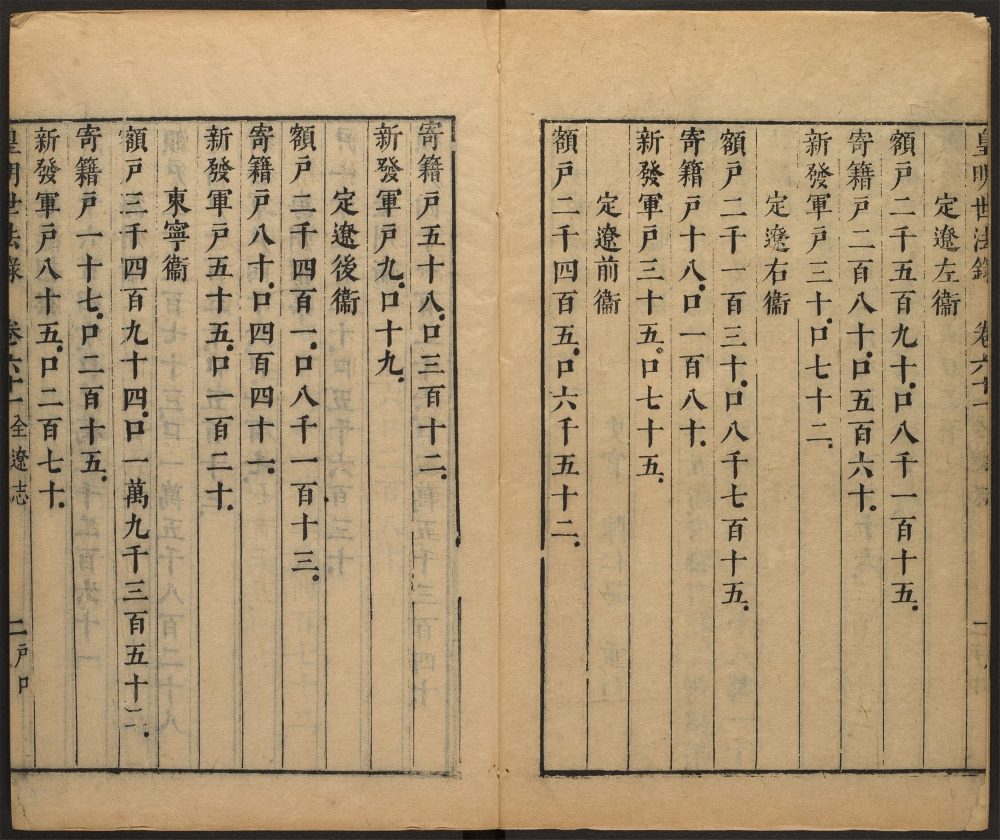 皇明世法錄 卷六十一
定遼左衞
額戶二千五百九十口八千一百十五
寄籍戶二百八十口五百六十
新發軍戶三十口七十二
定遼右衞
額戶二千一百三十口八千七百十五
寄籍戶十八口一百八十
新發軍戶三十五口七十五
定遼前衞
額戶二千四百五口六千五十二
寄籍戶五十八口三百十二
新發軍戶九口十九
定遼後衞
額戶二千四百一口八千一百十三
寄籍戶八十口四百四十
新發軍戶五十五口一百二十
東寧衞
額戶三千四百九十四口一萬九千三百五十二
寄籍戶一十七口二百十五
新發軍戶八十五口二百七十
皇明世法錄 卷六十一 全遼志 二 戶口